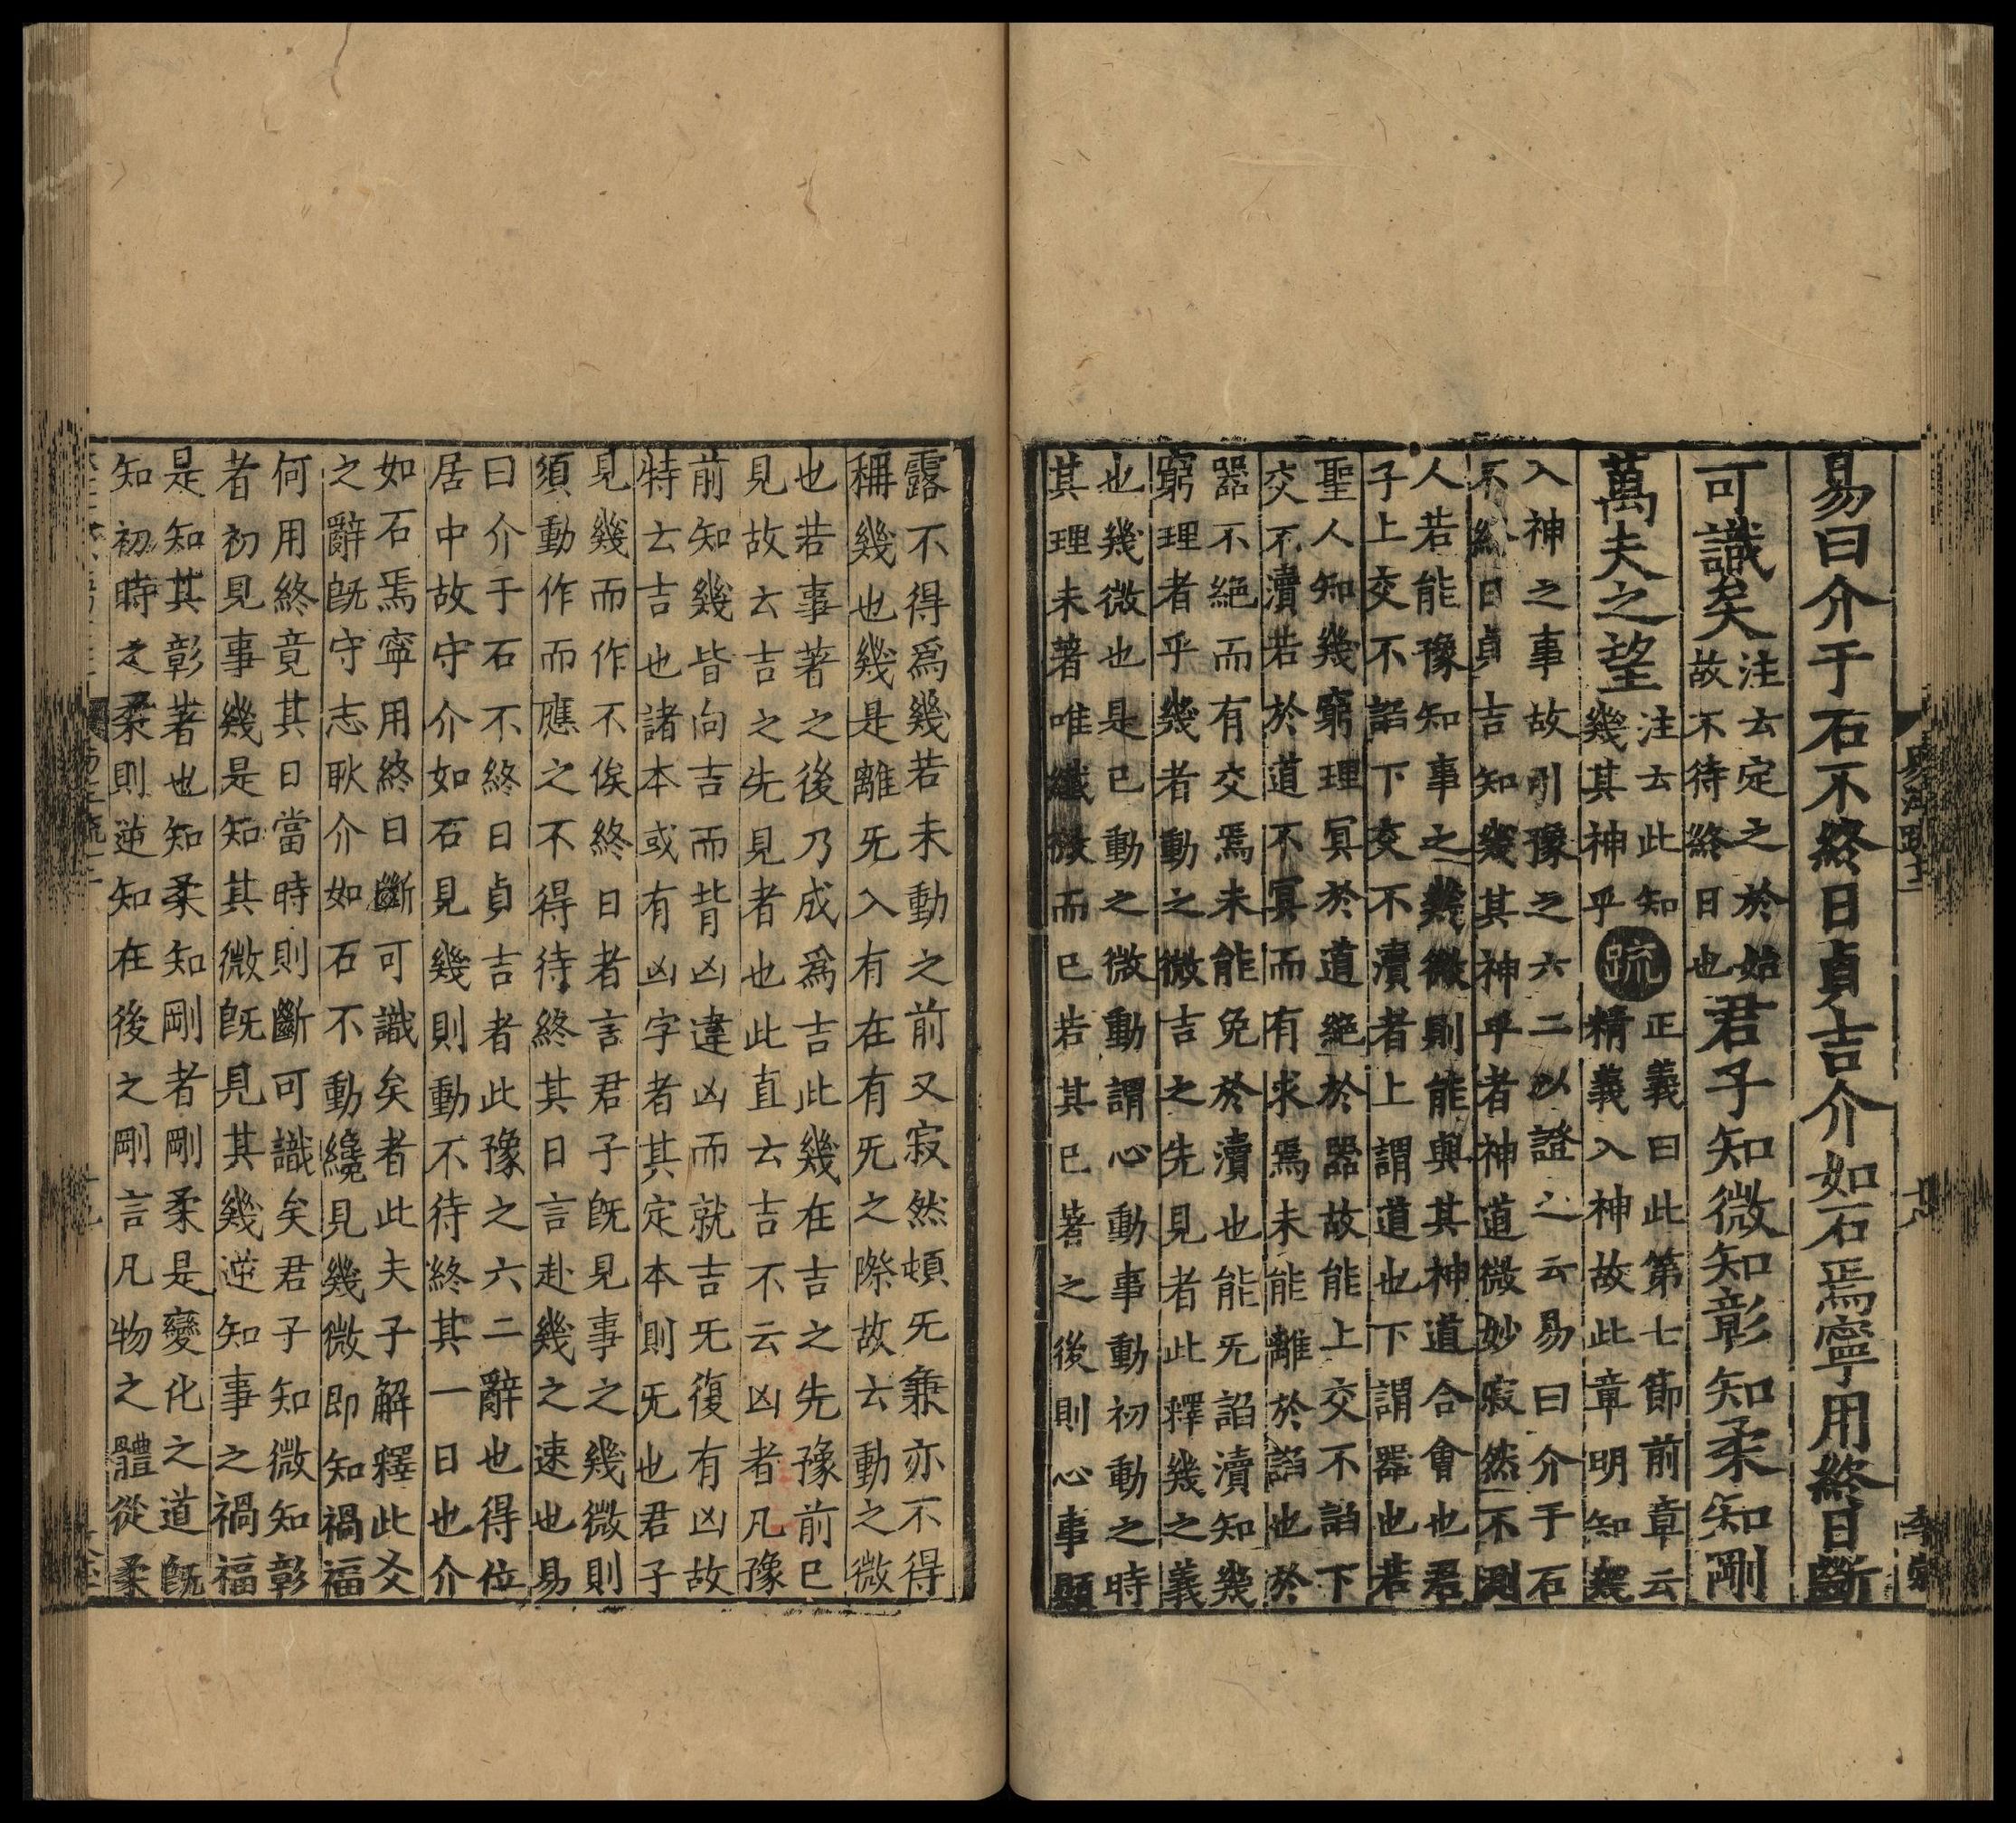 易曰介于石不終日貞吉介如石焉寧用終日斷
可識矣
注云定之於始
故不待終日也
君子知微知彰知柔知剛
萬夫之望
注云此知
幾其神乎
疏
正義曰此第七節前章云
精義入神故此章明知幾
入神之事故引豫之六二以證之云易曰介于石
不終日貞吉知幾其神乎者神道微妙寂然不測
人若能豫知事之幾微則能與其神道合會也君
子上交不諂下交不瀆者上謂道也下謂器也若
聖人知幾窮理冥於道絕於器故能上交不諂下
交不瀆若於道不冥而有求焉未能離於諂也於
器不絕而有交焉未能免於瀆也能无諂瀆知幾
窮理者乎幾者動之微吉之先見者此釋幾之義
也幾微也是已動之微動謂心動事動初動之時
其理未著唯纖微而已若其已著之後則心事顯
露不得爲幾若未動之前又寂然頓无兼亦不得
稱幾也幾是離无入有在有无之際故云動之微
也若事著之後乃成爲吉此幾在吉之先豫前已
見故云吉之先見者也此直云吉不云凶者凡豫
前知幾皆向吉而背凶違凶而就吉无復有凶故
特云吉也諸本或有凶字者其定本則无也君子
見幾而作不俟終日者言君子旣見事之幾微則
須動作而應之不得待終其日言赴幾之速也易
曰介于石不終日貞吉者此豫之六二辭也得位
居中故守介如石見幾則動不待終其一日也介
如石焉寧用終日斷可識矣者此夫子解釋此爻
之辭旣守志耿介如石不動纔見幾微即知禍福
何用終竟其日當時則斷可識矣君子知微知彰
者初見事幾是知其微旣見其幾逆知事之禍福
是知其彰著也知柔知剛者剛柔是變化之道旣
知初時之柔則逆知在後之剛言凡物之體從柔